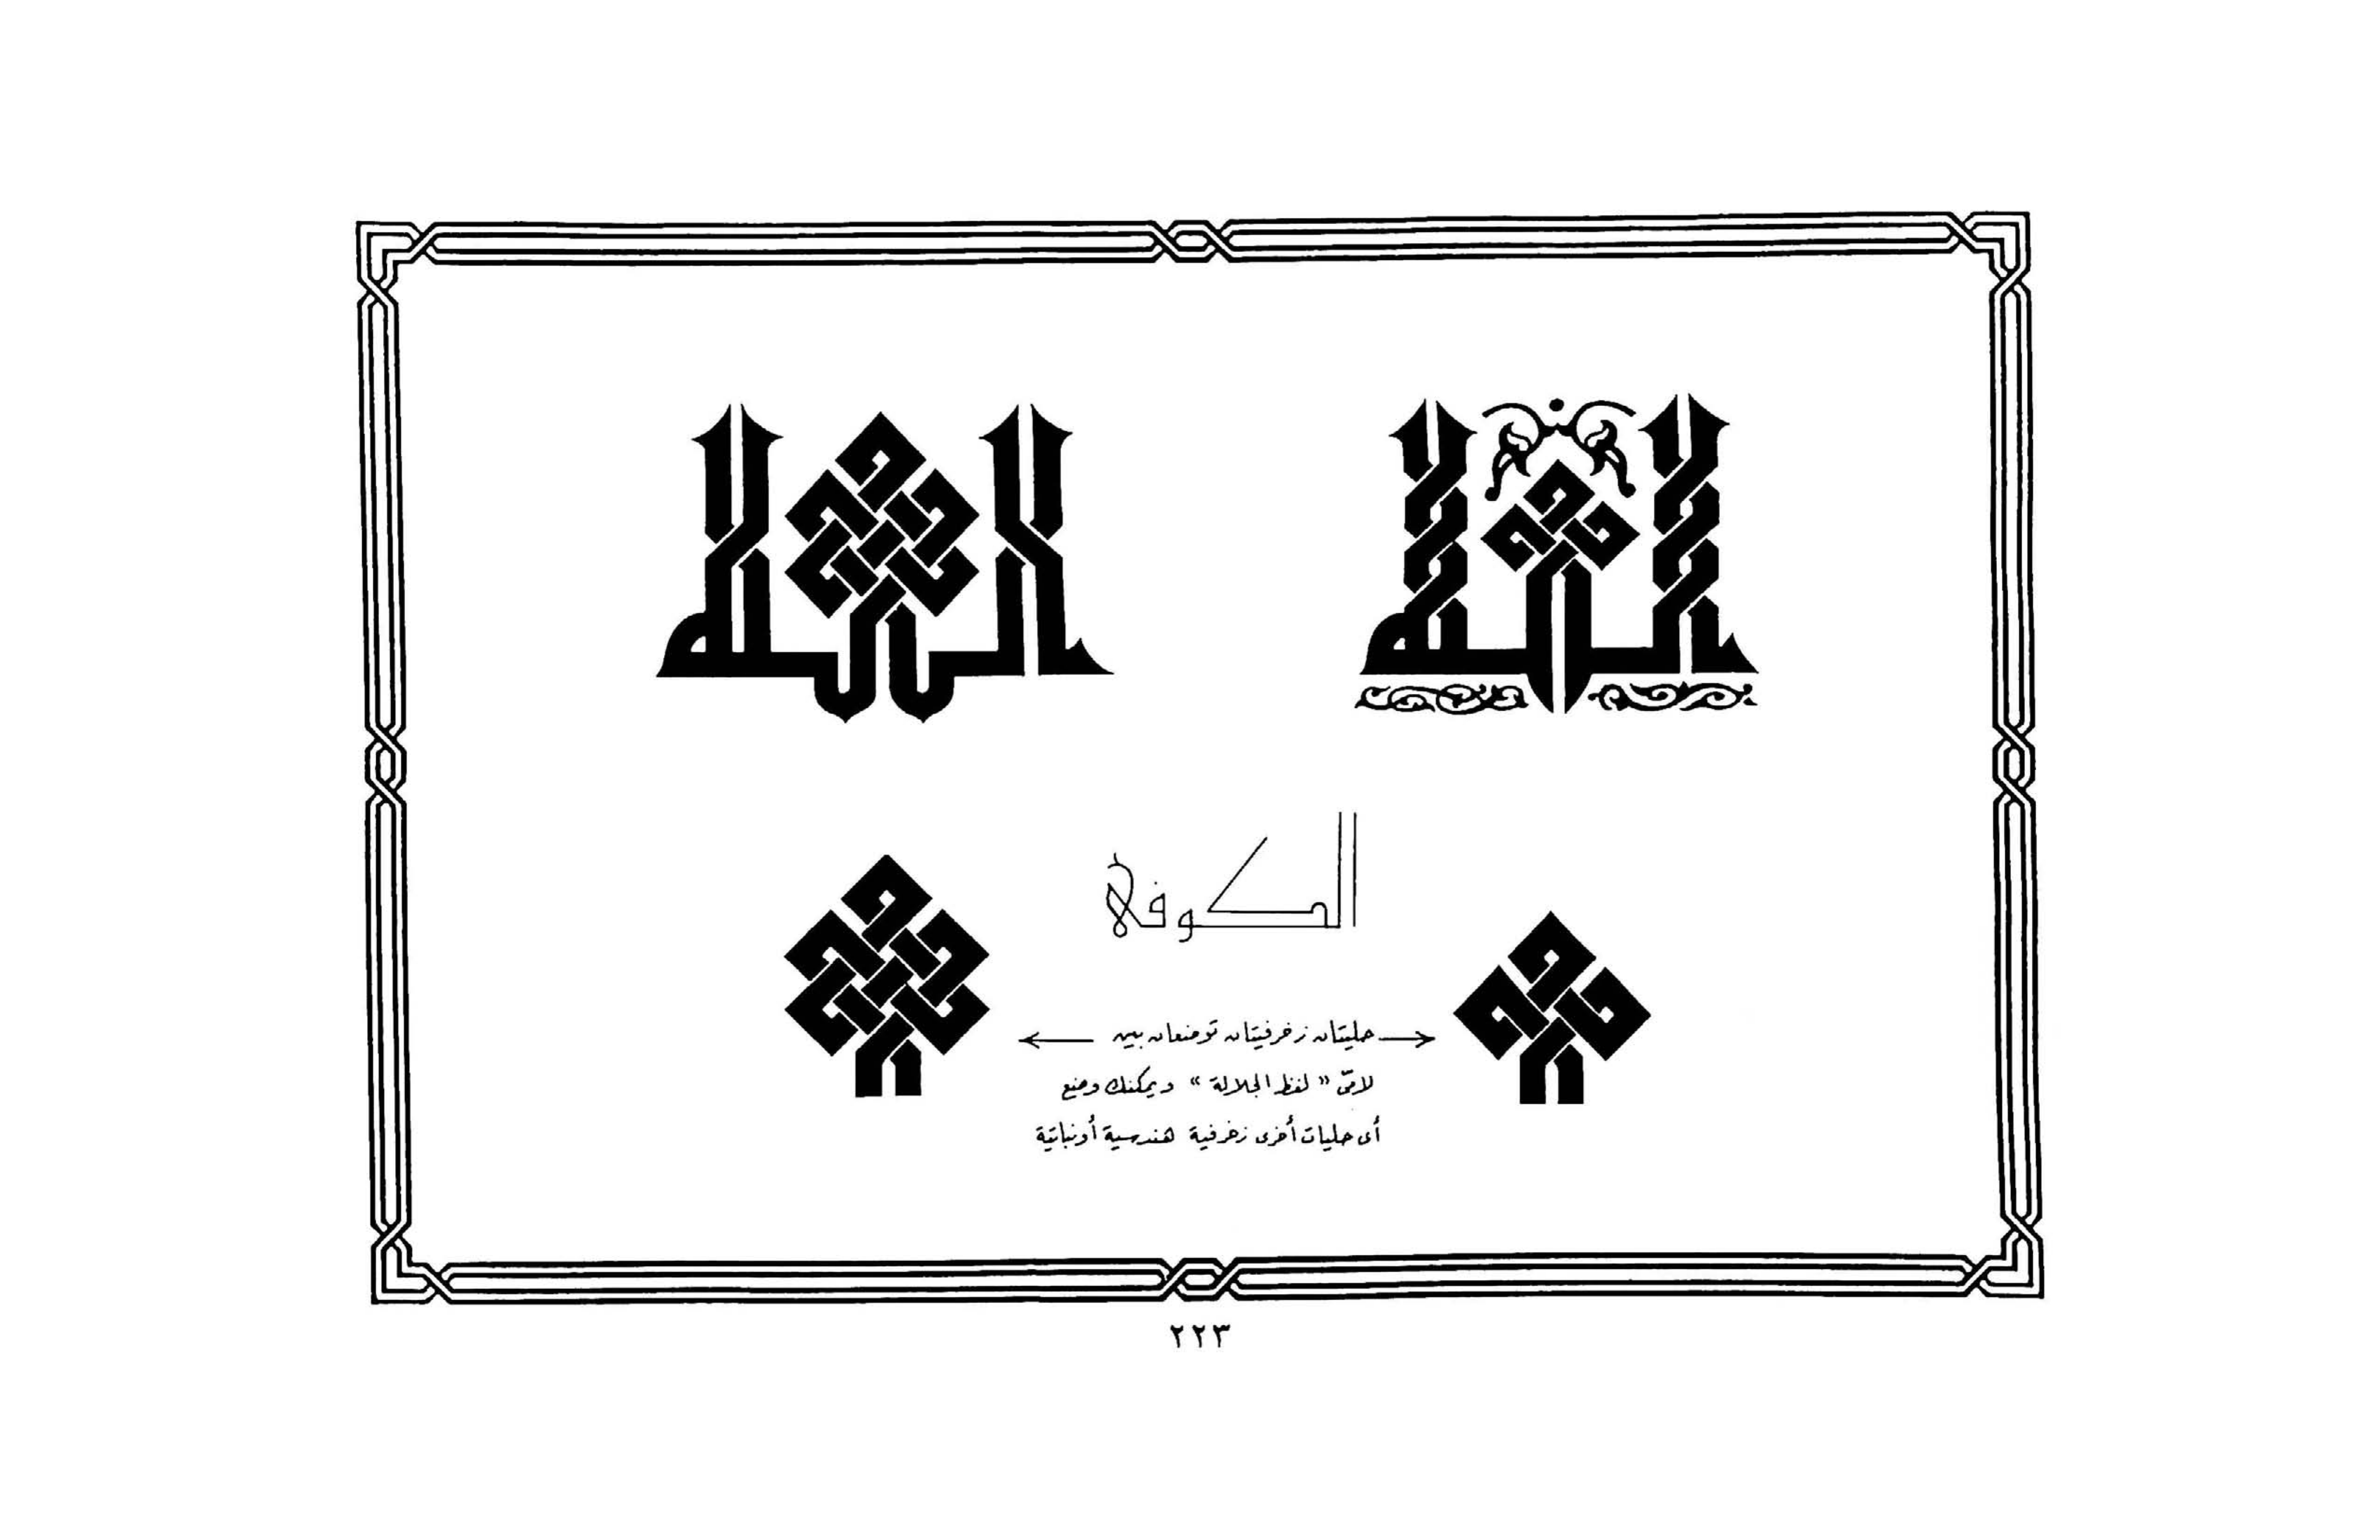 الله
الله
الكوفي
حليتان زخرفيتان توضعان بين
لامىّ « لفظ الجلالة » ويمكنك وضع
أى حليات أخرى زخرفية هندسية أو نباتية
٢٢٣